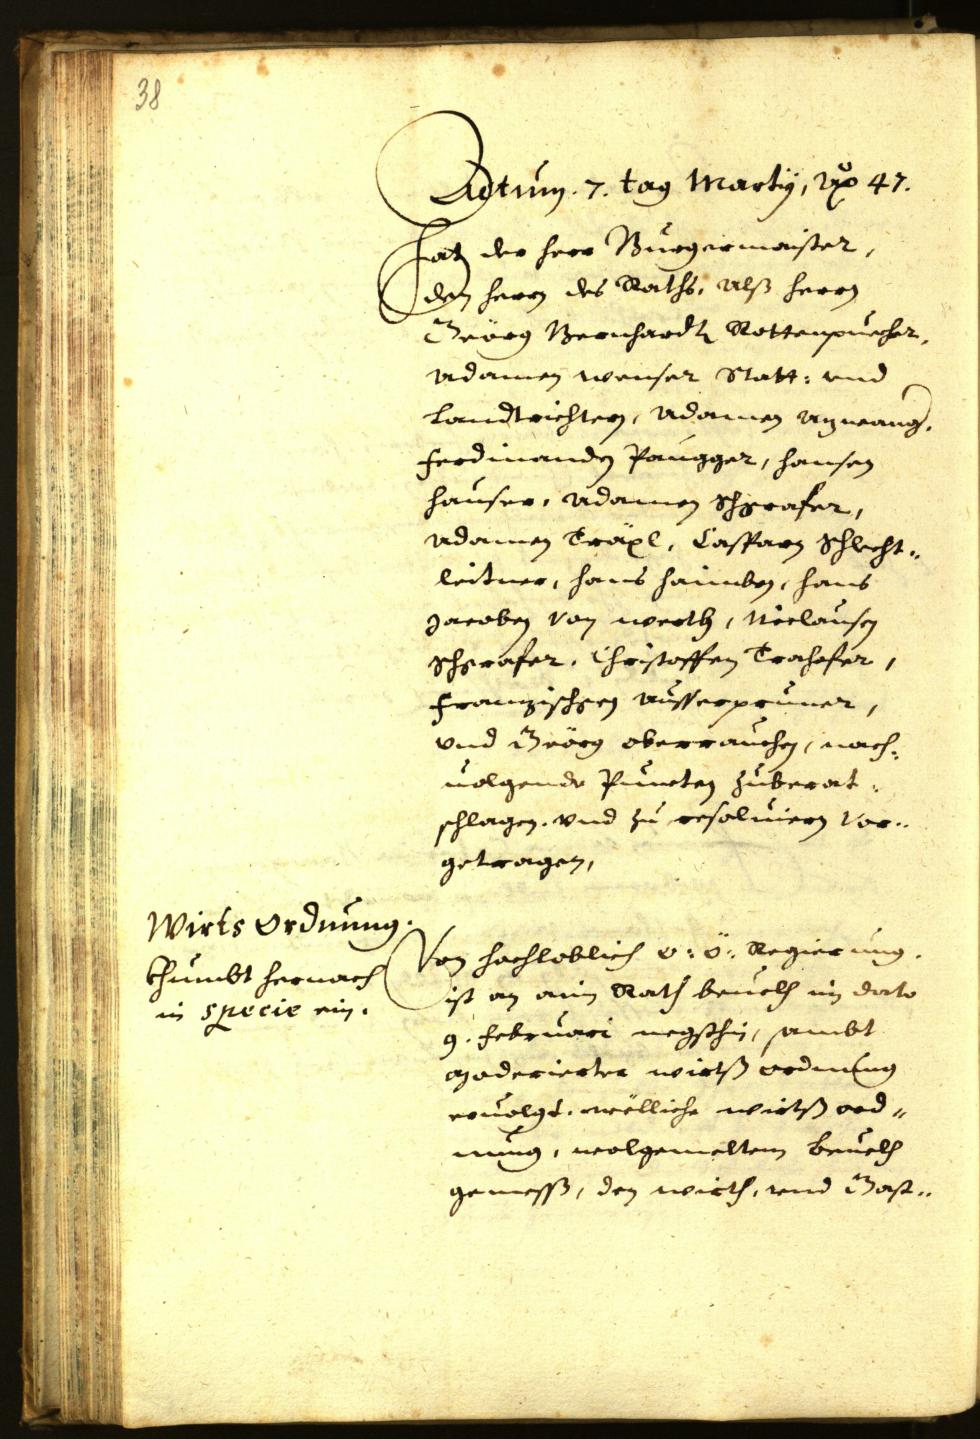 38
Actum. 7. tag Martÿ, Ao 47.
Hat der herr Burgermaister,
den herrn des Raths, Alß herrn
Geörg Bernhardt Rottenpuecher,
Adamen wenser Statt: vnd
Landtrichtern, Adamen
Ferdinanden Paugger, hansen
hauser, Adamen Schgrafer,
Adamen Träxl, Casparn Schlecht-
leitner, hans haimben, hans
Jacoben von werth, Niclausen
Schgrafer, Christoffen Trahofer,
Franzischgen Ausserpruner,
vnd Geörg oberrauchen, nach-
uolgende Puncten zuberat-
schlagen, vnd zu resoluiern vor-
getragen,
Wirts Ordnung.
khumbt hernach
in specie ein.
Von hochloblich o: ö: Regierung,
ist an ain Rath beuelh in dato
9. Februari negsthin, sambt
moderierter wirtß ordnung
eruolgt, wëlliche wirtß ord-
nung, wolgemeltem beuelh
gemeß, den wirth, vnd Gast-